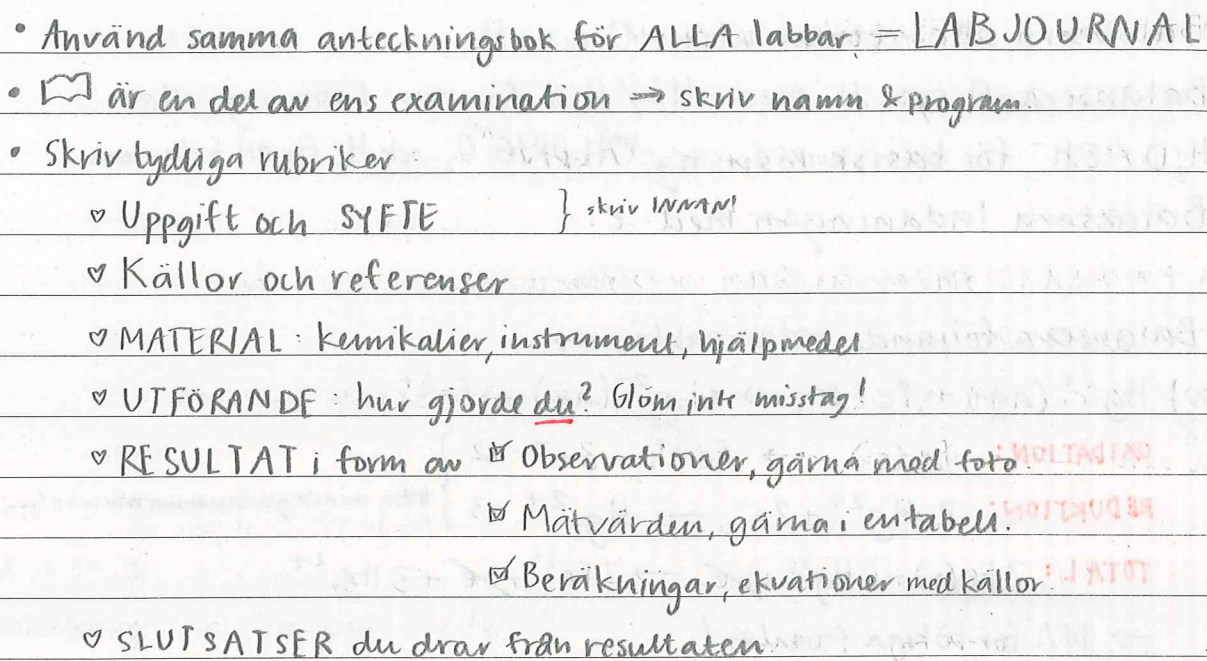 • Använd samma anteckningsbok för ALLA labbar = LABJOURNAL
• är en del av ens examination ⇒ skriv namn & program.
• Skriv tydliga rubriker:
♡ Uppgift och SYFTE } skriv INNAN!
♡ Källor och referenser
♡ MATERIAL: kemikalier, instrument, hjälpmedel
♡ UTFÖRANDE: hur gjorde du? Glöm inte misstag!
♡ RESULTAT i form av ☑ Observationer, gärna med foto.
☑ Mätvärden, gärna i en tabell.
☑ Beräkningar, ekvationer med källor.
♡ SLUTSATSER du drar från resultaten.